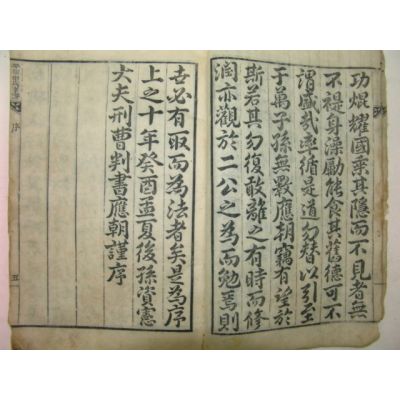 功焜耀國乘其隱而不見者無
不禔身澡勵能食其舊德可不
謂盛哉率循是道勿替以引至
于萬子孫無斁應朝竊有望於
斯若其勿復敢離之有時而修
潤亦觀於二公之為而勉焉則
古必有取而為法者矣是為序
上之十年癸酉孟夏後孫資憲
大夫刑曹判書應朝謹序
序
五